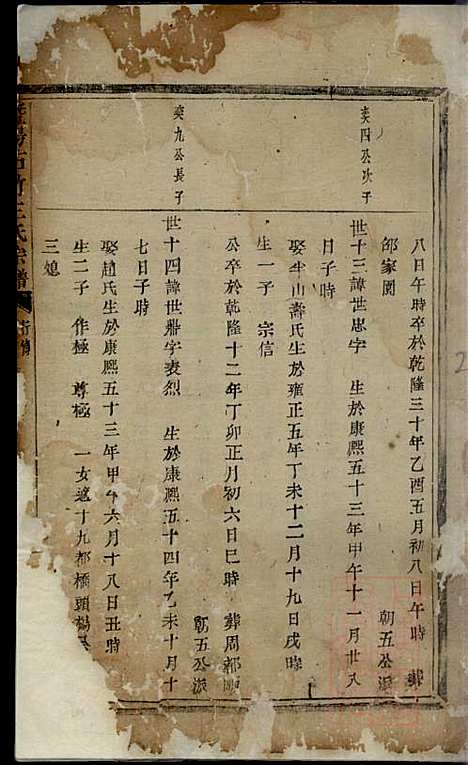 八日午時卒於乾隆三十年乙酉五月初八日午時 葬
邵家園 朝五公派
奕四公次子
世十三諱世忠字 生於康熙五十三年甲午十一月廿八
日子時
娶半山壽氏生於雍正五年丁未十二月十九日戌時
生一子 宗信
公卒於乾隆十二年丁卯正月初六日巳時 葬周郭
朝五公派
奕九公長子
世十四諱世鼎字表烈 生於康熙五十四年乙未十月十
七日子時
娶趙氏生於康熙五十三年甲午六月十八日丑時
生二子 作極 尊極 一女適十九都橋頭楊
三媳
王氏宗譜